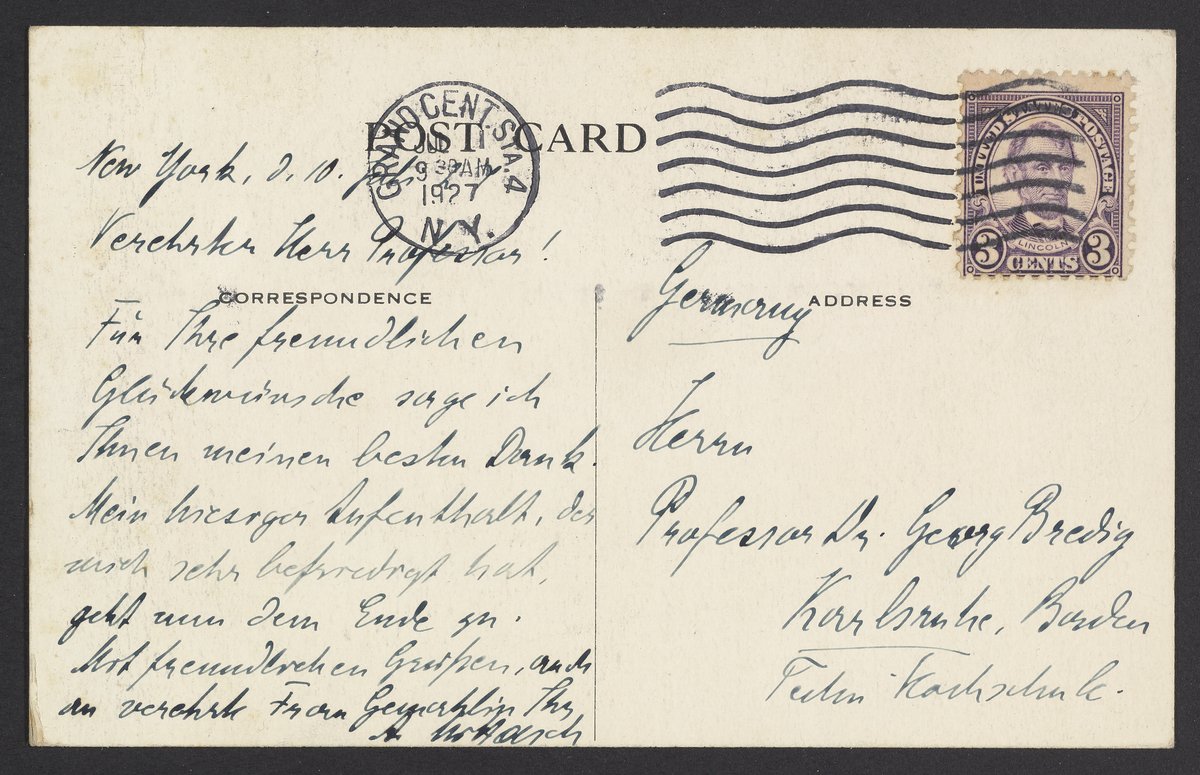 POST CARD
GRAND CENT. STA. 4
JUL
9 30 AM
1927
N.Y.
UNITED STATES POSTAGE
LINCOLN
3 CENTS 3
New York, d. 10. 27
Verehrter Herr Professor!
CORRESPONDENCE
Für Ihre freundlichen
Glückwünsche sage ich
Ihnen meinen besten Dank.
Mein hiesiger Aufenthalt, der
mich sehr befriedigt hat,
geht nun dem Ende zu.
Mit freundlichen Grüßen, auch
an verehrte Frau Gemahlin Ihr
A Mittasch
ADDRESS
Germany
Herrn
Professor Dr. Georg Bredig
Karlsruhe, Baden
Techn Hochschule.